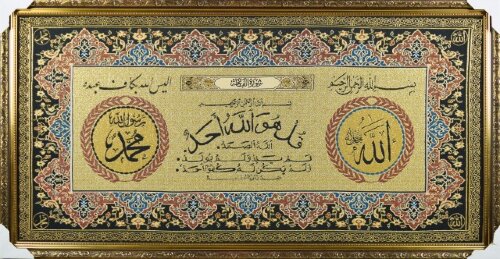 بسم الله الرحمن الرحيم
أليس الله بكاف عبده
بسم الله الرحمن الرحيم
قل هو الله أحد
الله الصمد
لم يلد ولم يولد
ولم يكن له كفوا أحد
الله
جل جلاله
محمد
رسول الله